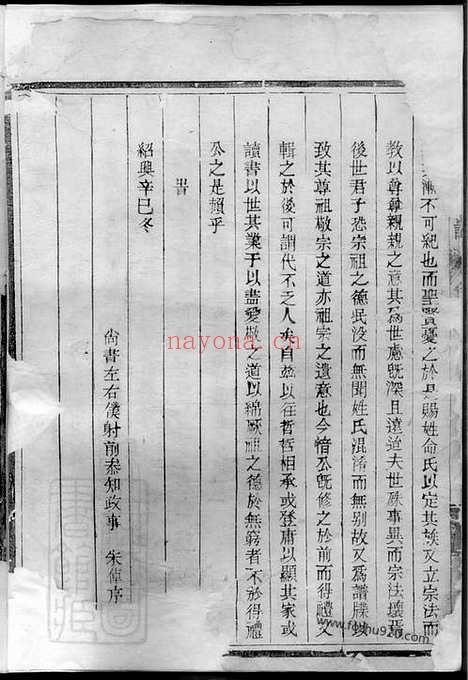 渙不可紀也而聖賢憂之於是賜姓命氏以定其族又立宗法而
教以尊尊親親之意其爲世慮旣深且遠迨夫世殊事異而宗法壞焉
後世君子恐宗祖之德泯没而無聞姓氏混淆而無别故又爲譜牒以
致其尊祖敬宗之道亦祖宗之遺意也今愔公旣修之於前而得禮又
輯之於後可謂代不乏人矣自兹以往哲哲相承或登庸以顯其家或
讀書以世其業于以盡愛敬之道以綿厥祖之德於無窮者不於得禮
公之是賴乎
旹
紹興辛巳冬
尚書左右僕射前叅知政事 朱倬序
nayona.cn
www.fozhu920.com